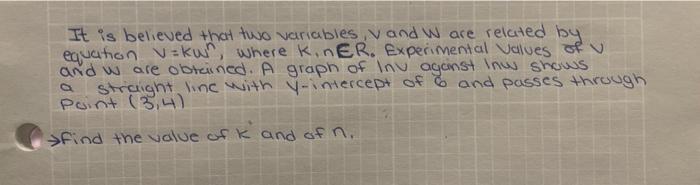 It is believed that two variables, v and w are related by
equation v = kwⁿ, where k, n ∈ R. Experimental values of v
and w are obtained. A graph of lnv against lnw shows
a straight line with y-intercept of 6 and passes through
Point (3,4)
→Find the value of k and of n.